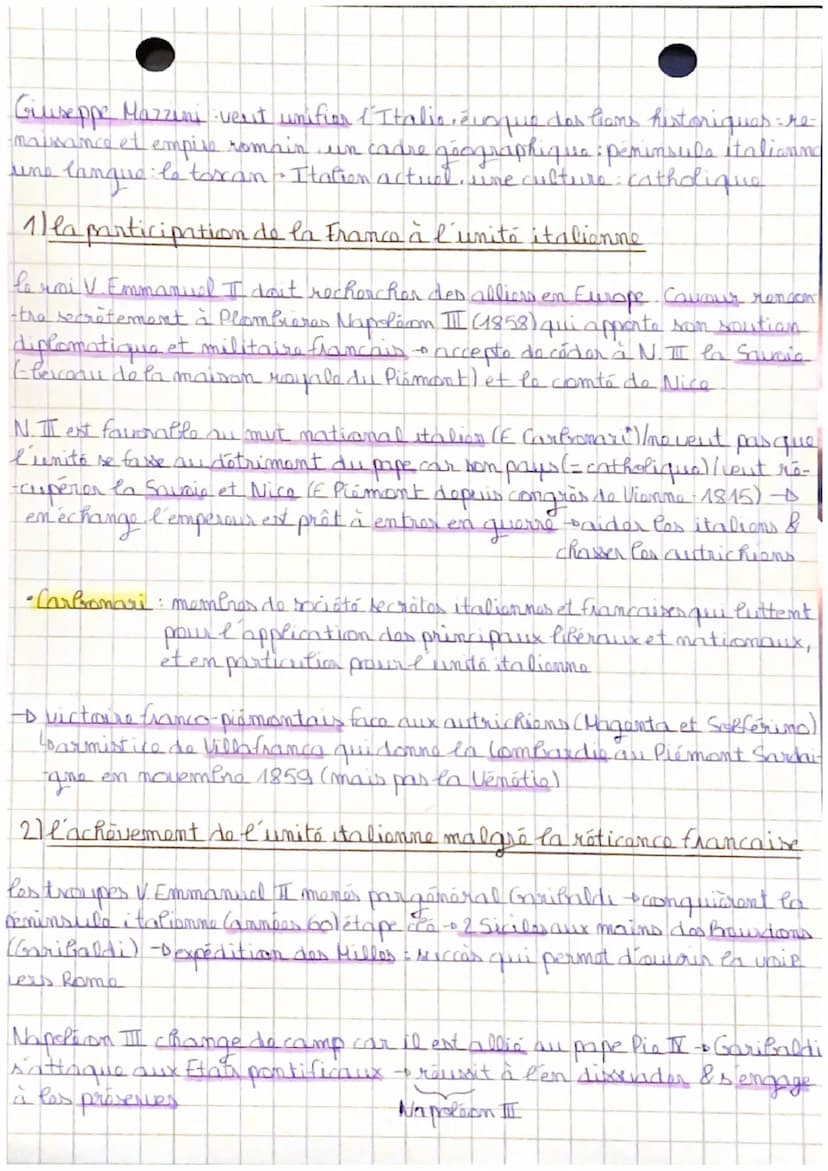 Giuseppe Mazzini : veut unifier l'Italie, évoque des liens historiques : re-
naissance et empire romain, un cadre géographique : péninsule italienne
une langue : le toscan → Italien actuel, une culture : catholique
1) la participation de la France à l'unité italienne
le roi V. Emmanuel II doit rechercher des alliers en Europe. Cavour rencon
-tre secrètement à Plombières Napoléon III (1858) qui apporte son soutien
diplomatique et militaire français → accepte de céder à N. III la Savoie
(= berceau de la maison royale du Piémont) et le comté de Nice
N. III est favorable au mvt national italien (€ Carbonari*) / ne veut pas que
l'unité se fasse au détriment du pape car son pays (= catholique) / veut ré-
-cupérer la Savoie et Nice (€ Piémont depuis congrès de Vienne - 1815) →
en échange l'empereur est prêt à entrer en guerre → aider les italiens &
chasser les autrichiens
• Carbonari : membres de société secrètes italiennes et françaises qui luttent
pour l'application des principaux libéraux et nationaux,
et en particulier pour l'unité italienne
→ victoire franco-piémontais face aux autrichiens (Magenta et Solférino)
↳ armistice de Villafranca qui donne la Lombardie au Piémont Sardai-
-gne en novembre 1859 (mais pas la Vénétie)
2) l'achèvement de l'unité italienne malgré la réticence française
les troupes V. Emmanuel II menés par général Garibaldi → conquièrent la
péninsule italienne (années 60) étape clé → 2 Siciles aux mains des Bourbons
(Garibaldi) → expédition des Milles : succès qui permet d'ouvrir la voie
vers Rome
Napoléon III change de camp car il est allié au pape Pie IX → Garibaldi
s'attaque aux Etats pontificaux → réussit à l'en dissuader & s'engage
à les préserver
Napoléon III